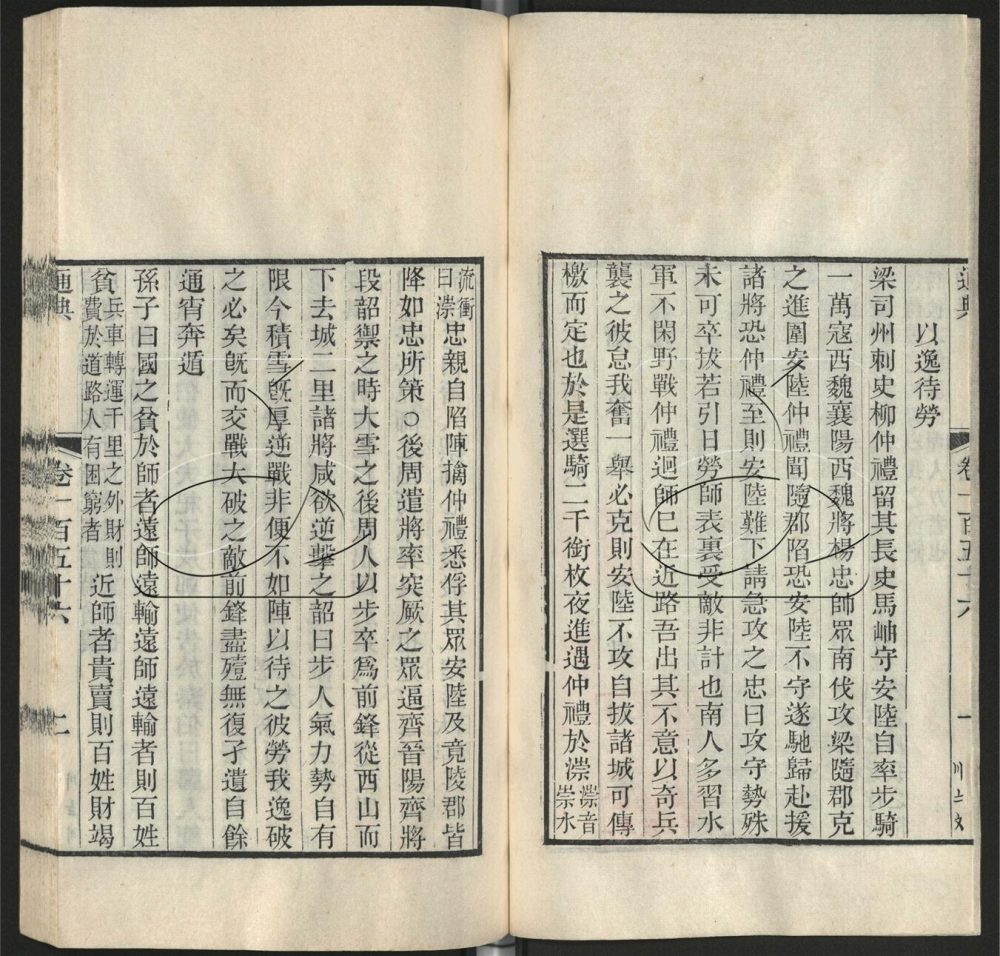 通典
卷一百五十六
一
以逸待勞
梁司州刺史柳仲禮留其長史馬岫守安陸自率步騎
一萬寇西魏襄陽西魏將楊忠帥眾南伐攻梁隨郡克
之進圍安陸仲禮聞隨郡陷恐安陸不守遂馳歸赴援
諸將恐仲禮至則安陸難下請急攻之忠曰攻守勢殊
未可卒拔若引日勞師表裏受敵非計也南人多習水
軍不閑野戰仲禮迴師已在近路吾出其不意以奇兵
襲之彼怠我奮一舉必克則安陸不攻自拔諸城可傳
檄而定也於是選騎二千銜枚夜進遇仲禮於漴漴音崇水
流衝曰漴忠親自陷陣擒仲禮悉俘其眾安陸及竟陵郡皆
降如忠所策○後周遣將率突厥之眾逼齊晉陽齊將
段韶禦之時大雪之後周人以步卒爲前鋒從西山而
下去城二里諸將咸欲逆擊之韶曰步人氣力勢自有
限今積雪旣厚逆戰非便不如陣以待之彼勞我逸破
之必矣旣而交戰大破之敵前鋒盡殪無復孑遺自餘
通宵奔遁
孫子曰國之貧於師者遠師遠輸遠師遠輸者則百姓
貧兵車轉運千里之外財則費於道路人有困窮者近師者貴賣則百姓財竭
通典
卷一百五十六
二